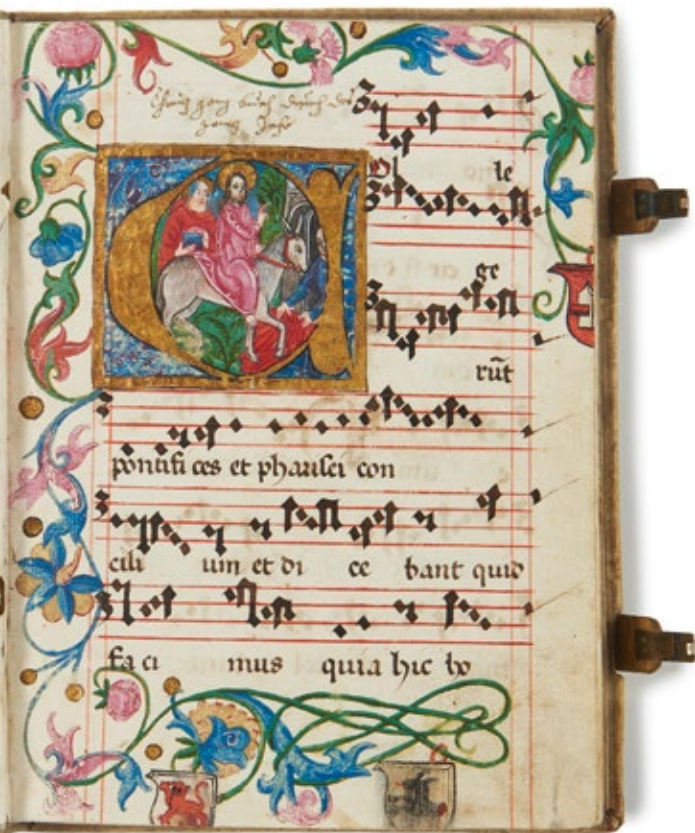 C Ol le
ge
rūt
pontifi ces et pharisei con
cili um et di ce bant quid
fa ci mus quia hic ho